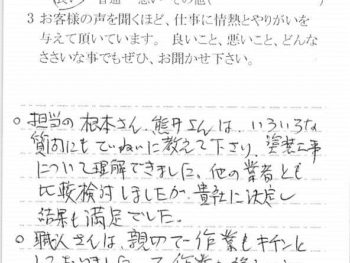 (良い) 普通 悪い その他(
3 お客様の声を聞くほど、仕事に情熱とやりがいを
与えて頂いています。 良いこと、悪いこと、どんな
ささいな事でもぜひ、お聞かせ下さい。
○ 担当の根本さん、熊井さんは、いろいろな
質問にもていねいに教えて下さり、塗装工事
について理解できました。他の業者とも
比較検討しましたが、貴社に決定し
結果も満足でした。
○ 職人さんは、親切で作業もキチンと
しておりました